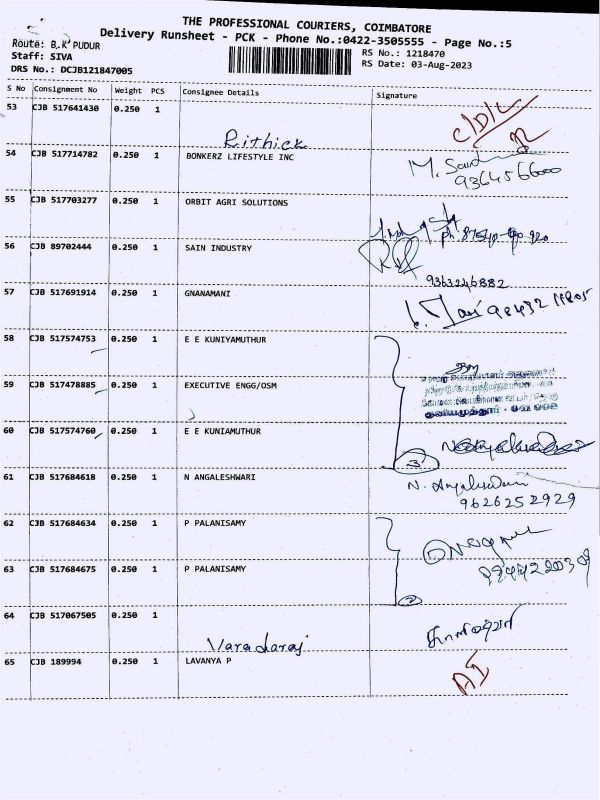 THE PROFESSIONAL COURIERS, COIMBATORE
Delivery Runsheet - PCK - Phone No.:0422-3505555 - Page No.:5
Route: B.K PUDUR
RS No.: 1218470
Staff: SIVA
RS Date: 03-Aug-2023
DRS No.: DCJB121847005
S No Consignment No Weight PCS Consignee Details Signature
53 CJB 517641430 0.250 1
C/D/L
Rithick
54 CJB 517714782 0.250 1 BONKERZ LIFESTYLE INC
55 CJB 517703277 0.250 1 ORBIT AGRI SOLUTIONS
56 CJB 89702444 0.250 1 SAIN INDUSTRY
9363246882
57 CJB 517691914 0.250 1 GNANAMANI
58 CJB 517574753 0.250 1 E E KUNIYAMUTHUR
59 CJB 517478885 0.250 1 EXECUTIVE ENGG/OSM
60 CJB 517574760 0.250 1 E E KUNIAMUTHUR
3
61 CJB 517684618 0.250 1 N ANGALESHWARI
9626252929
62 CJB 517684634 0.250 1 P PALANISAMY
63 CJB 517684675 0.250 1 P PALANISAMY
2
64 CJB 517067505 0.250 1
Varadaraj
65 CJB 189994 0.250 1 LAVANYA P